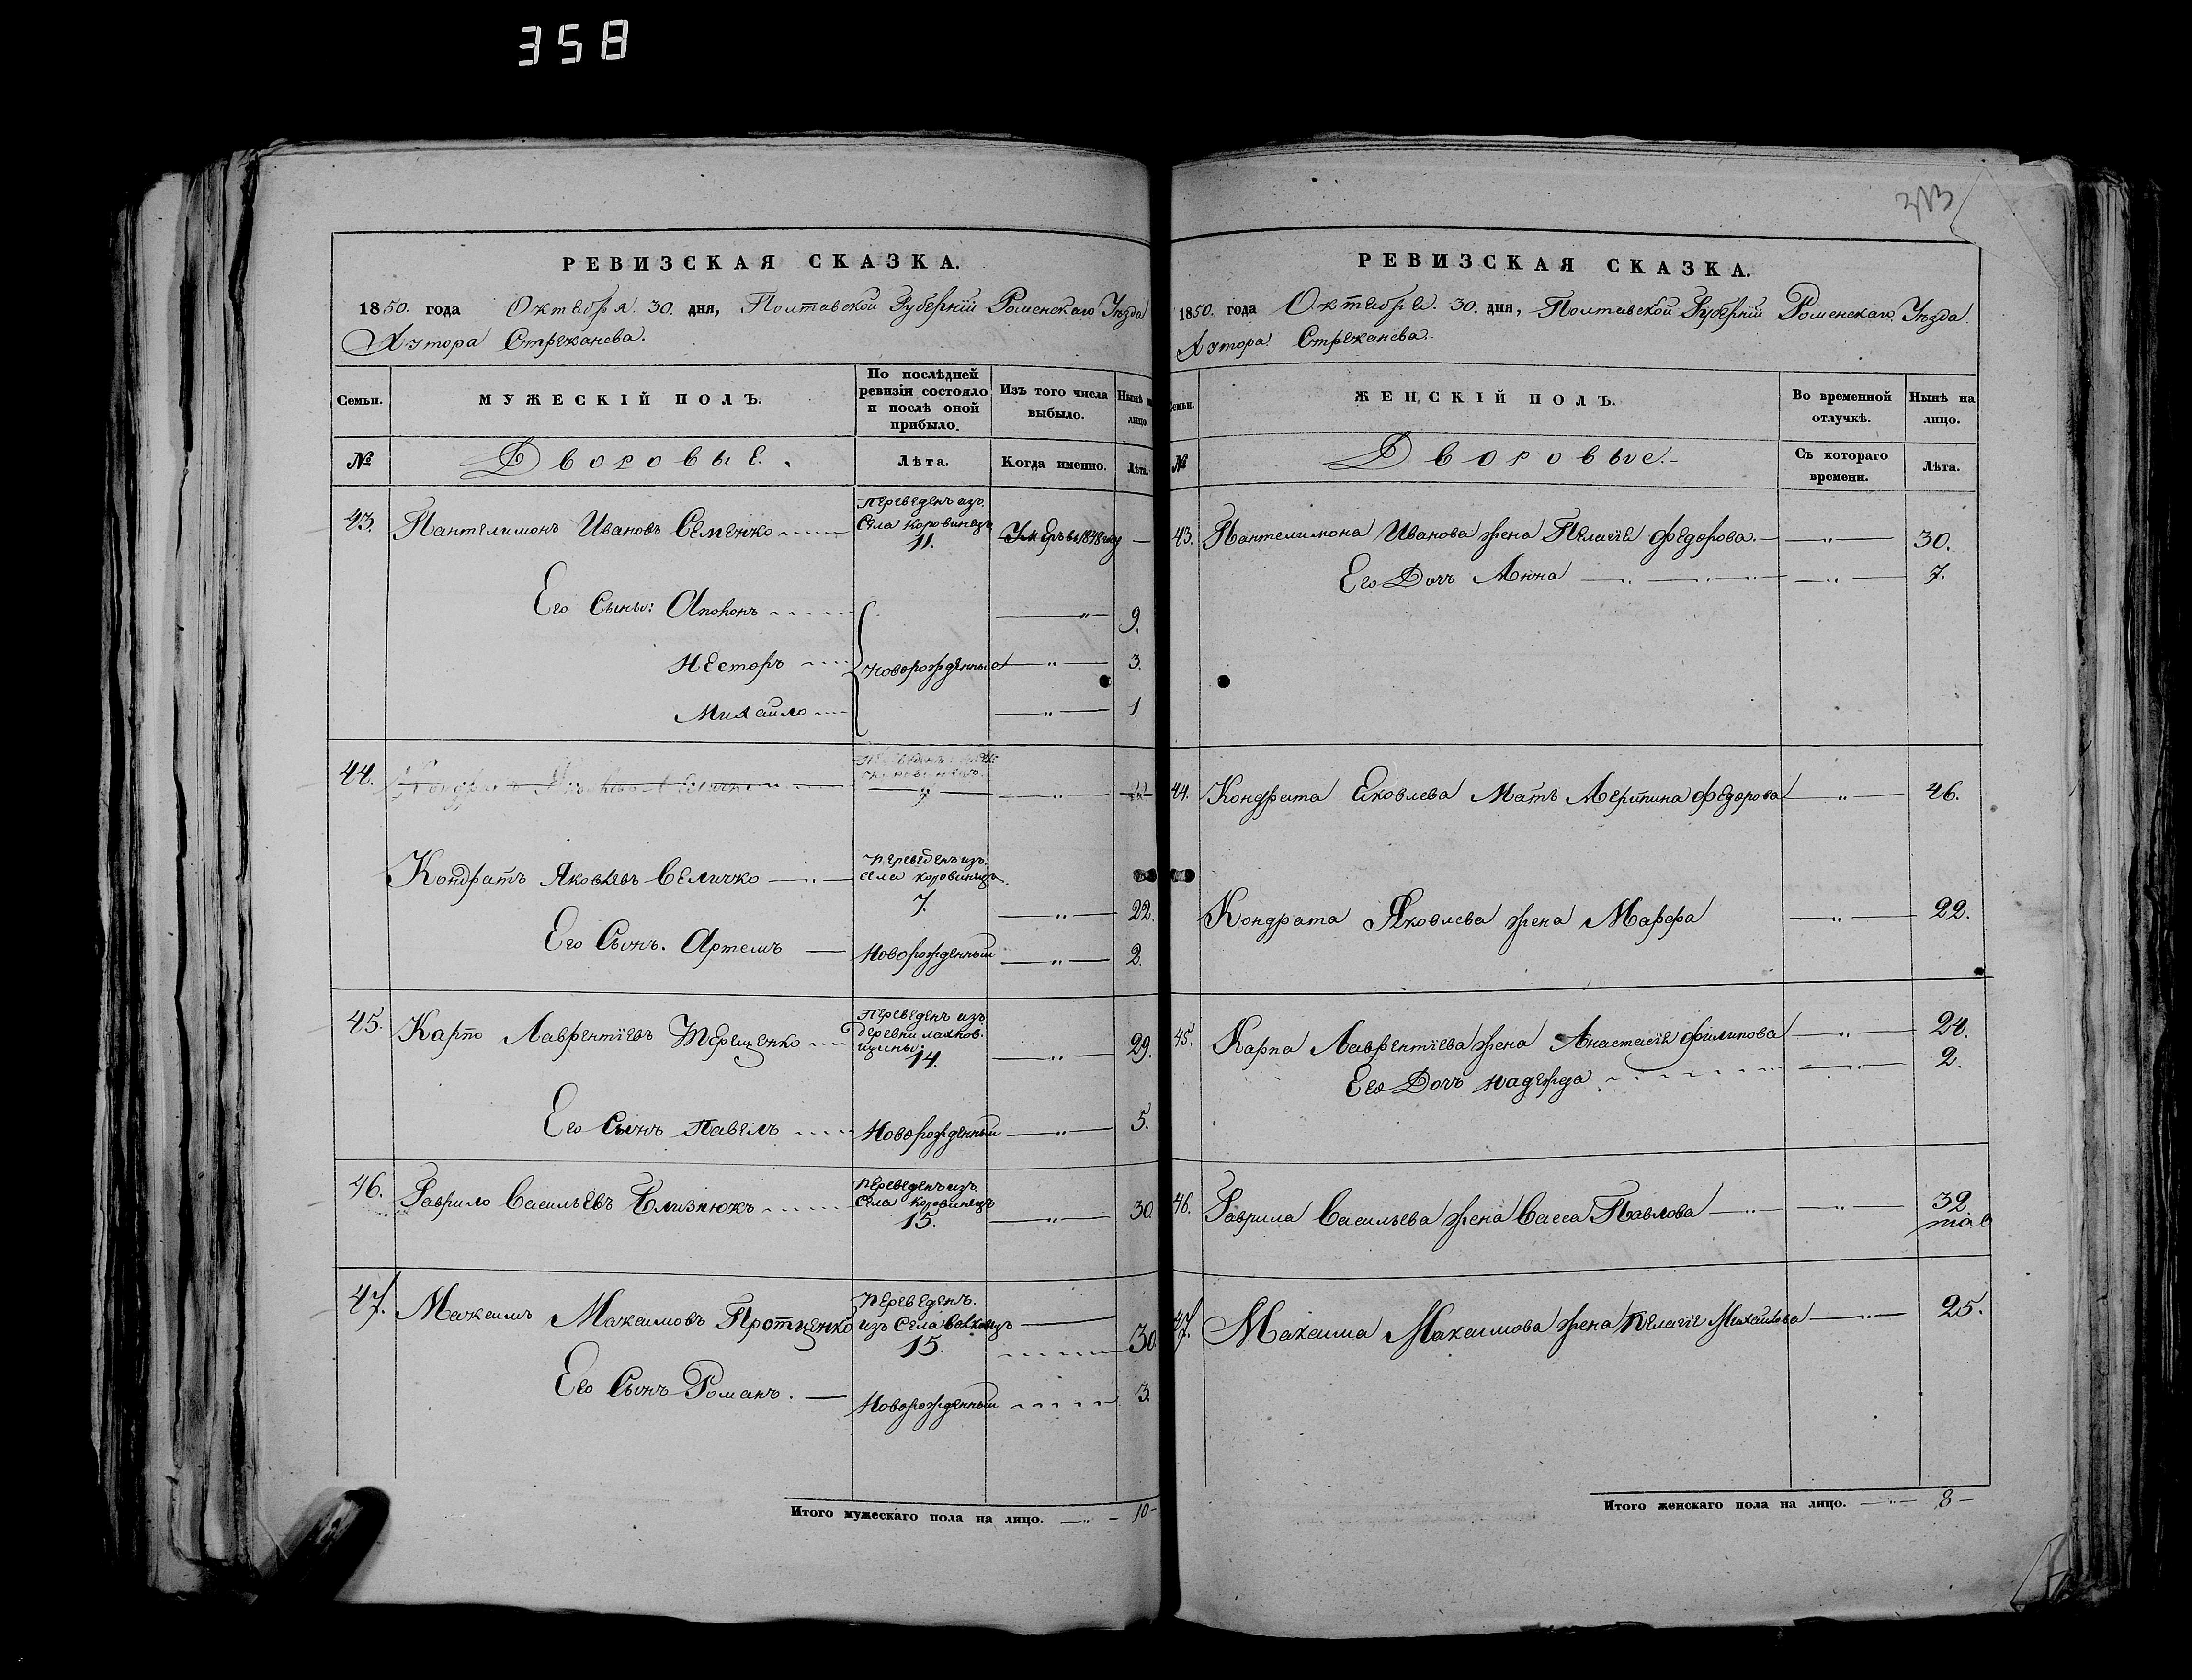 358
313
РЕВИЗСКАЯ СКАЗКА.
1850. года Октября. 30. дня, Полтавской Губерніи Роменскаго Уѣзда
Хутора Стрѣжанева.
Семьи.
МУЖЕСКІЙ ПОЛЪ.
По послѣдней ревизіи состояло и послѣ оной прибыло.
Изъ того числа выбыло.
Нынѣ на лицо.
№
Дворовые.
Лѣта.
Когда именно.
Лѣта.
43. Пантелимонъ Ивановъ Семенко
Переведенъ изъ
села коровинецъ
11.
Умеръ въ 1848 году
Его Сыны: Агофонъ 9.
Несторъ Новорожденные 3.
Михайло 1.
44.
Кондратъ Яковлевъ Величко
Переведенъ изъ
села коровинецъ
7. 22.
Его Сынъ. Артемъ Новорожденный 2.
45. Карпо Лаврентіевъ Терещенко
Переведенъ изъ
деревни лахнов-
щины.
14. 29.
Его Сынъ Павелъ Новорожденный 5.
46. Гаврило Васильевъ Близнюкъ
Переведенъ изъ
села коровинецъ
15. 30
47. Максимъ Максимовъ Протценко
Переведенъ.
изъ села
15. 30
Его Сынъ Романъ. Новорожденный 3.
Итого мужескаго пола на лицо. 10
РЕВИЗСКАЯ СКАЗКА.
1850. года Октебре. 30. дня, Полтавской Губерніи Роменскаго Уѣзда.
Хутора Стрѣжанева.
Семьи.
ЖЕНСКІЙ ПОЛЪ.
Во временной отлучкѣ.
Нынѣ на лицо.
№
Дворовые.
Съ котораго времени.
Лѣта.
43. Пантелимона Иванова жена Пелагіе Федорова. 30.
Его Дочъ Анна 7.
44. Кондрата Яковлева Мать Агрипина Федорова 46.
Кондрата Яковлева жена Марфа 22.
45. Карпа Лаврентіева жена Анастасіе Филипова 24.
Его Дочъ надежда 2.
46. Гаврила Васильева жена Васса Павлова 32
47. Максима Максимова жена Пелагіе Михайлова 25.
Итого женскаго пола на лицо. 8